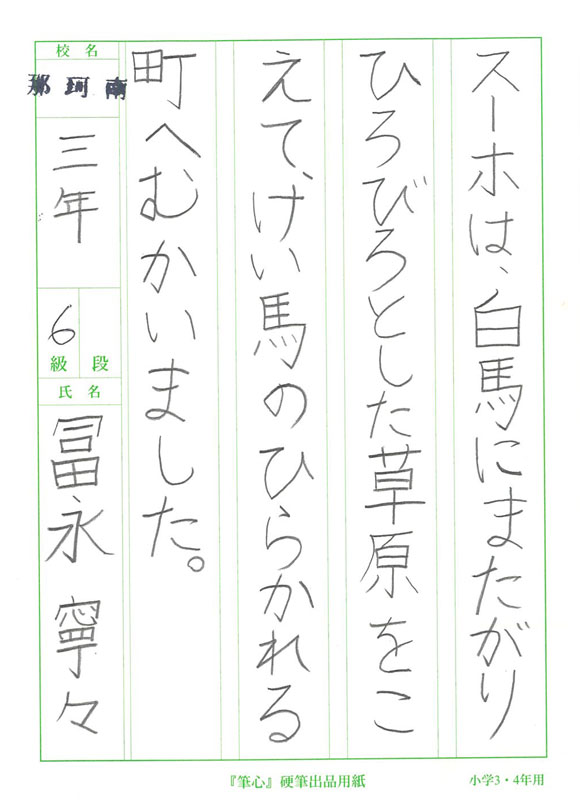 スーホは、白馬にまたがり
ひろびろとした草原をこ
えて、けい馬のひらかれる
町へむかいました。
校名
那珂南
三年
6
級 段
氏名
冨永 寧々
『筆心』硬筆出品用紙
小学3・4年用